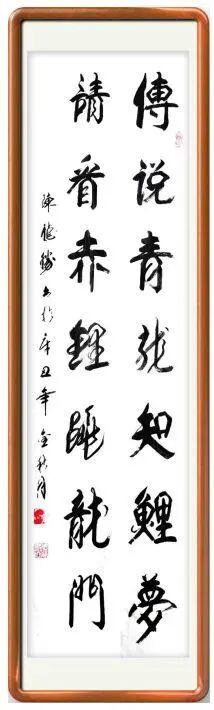 傳说青龙知鯉夢
請看赤鯉躍龍門
陳龍勝书於辛丑年金秋月